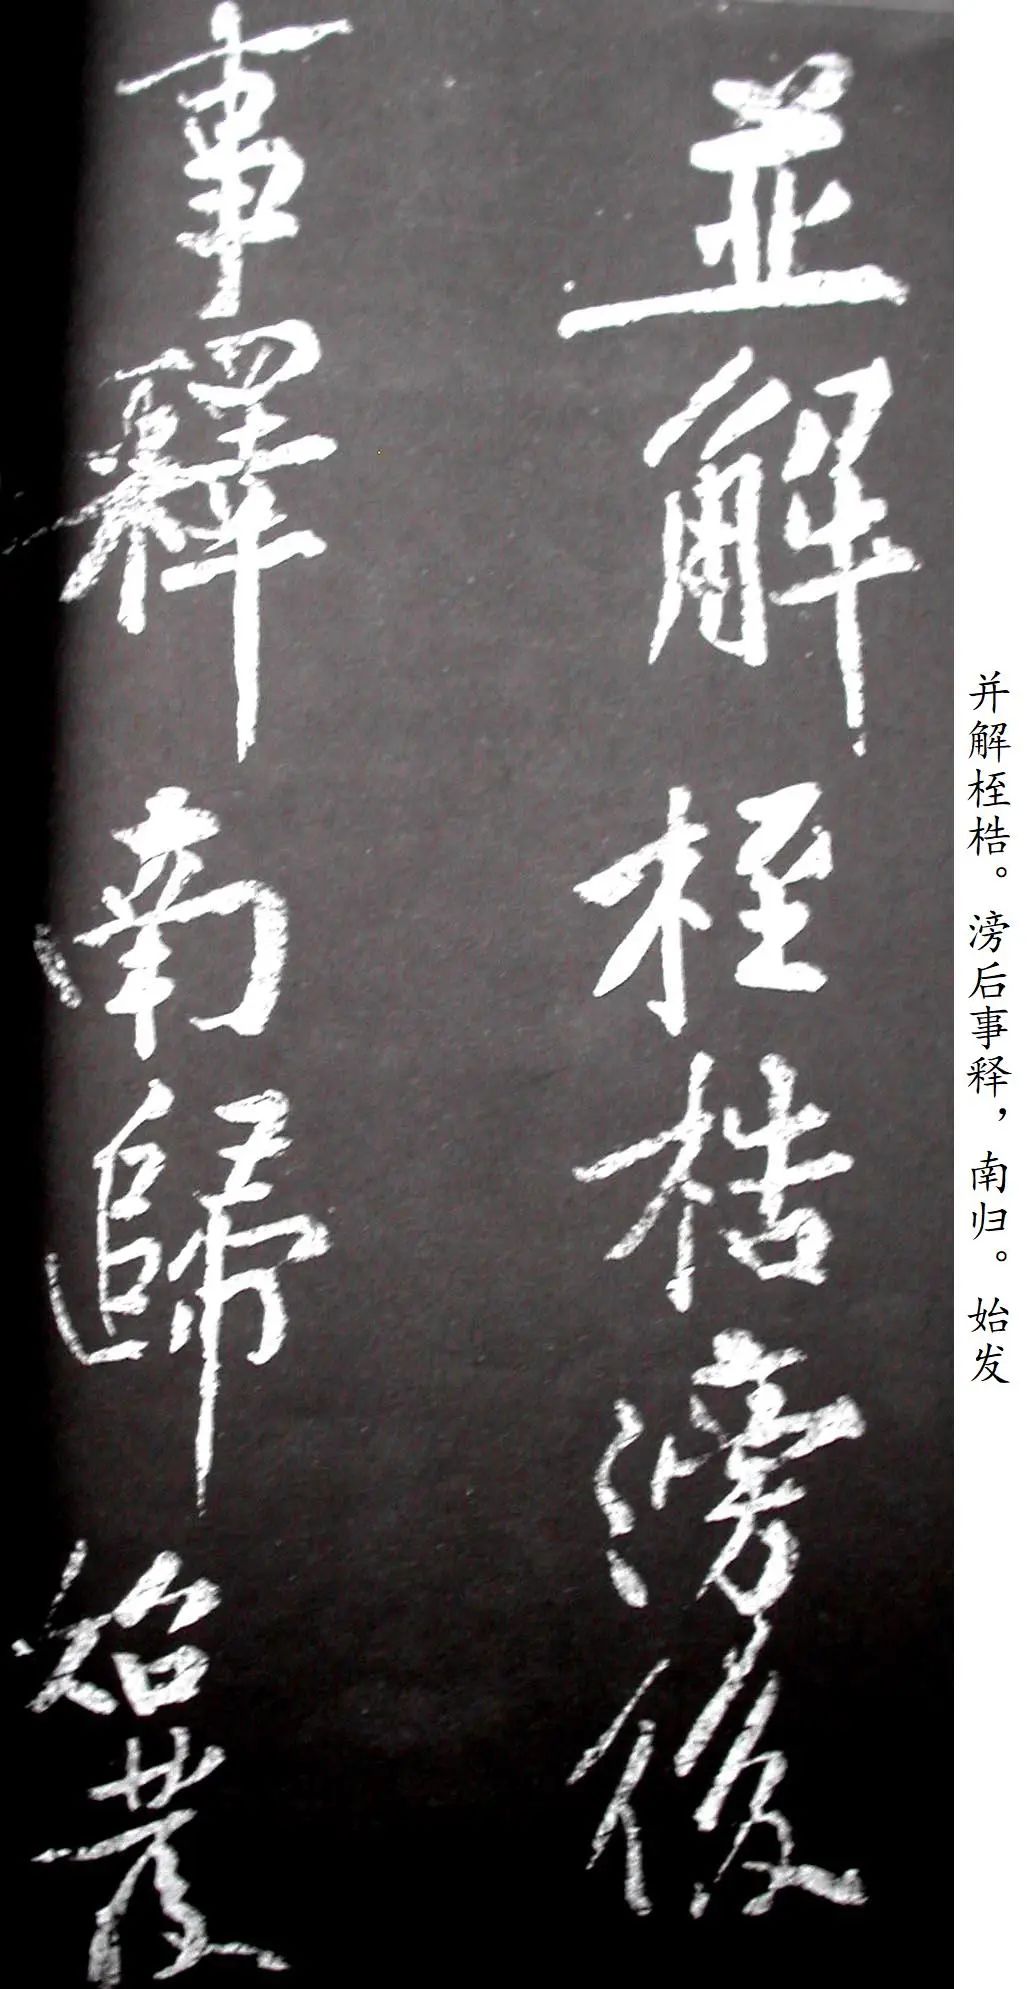 並解桎梏滂後
事釋南歸始發
并解桎梏。滂后事释，南归。始发